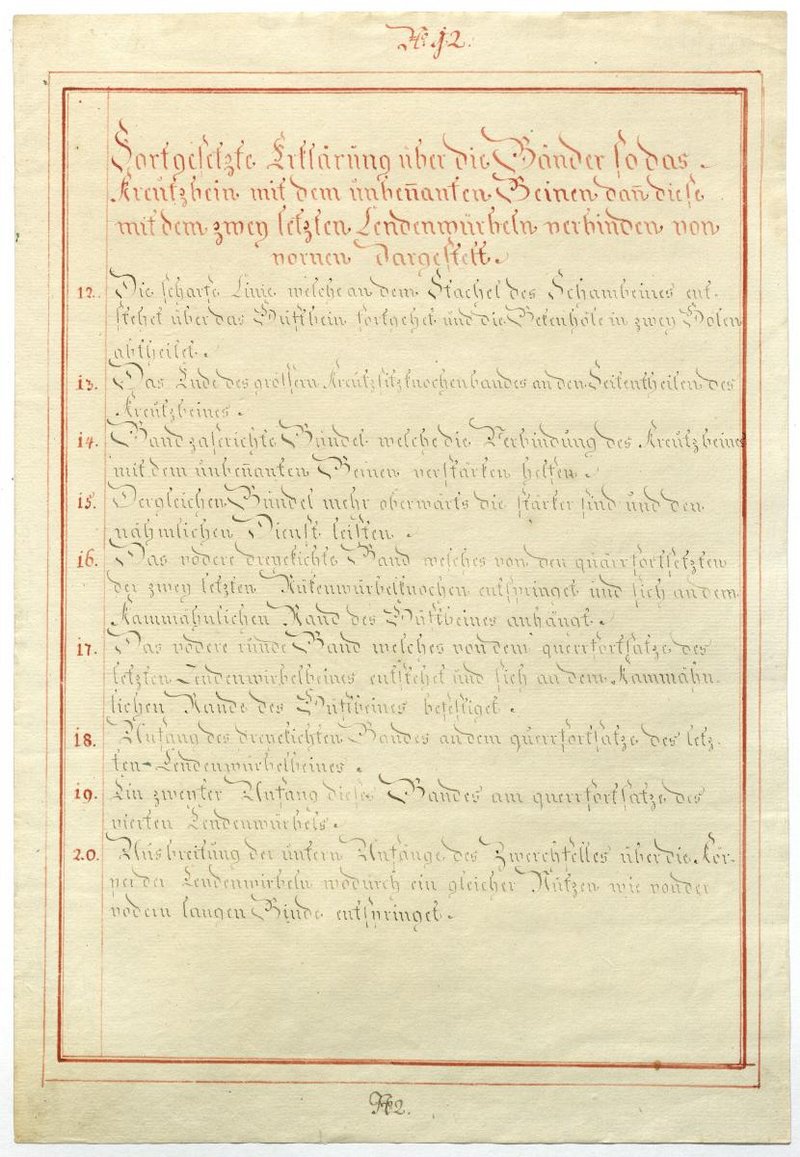 No. 12.
Fortgesetzte Erklärung über die Bänder so das
Kreutzbein mit dem unbeñanten Beinen dañ diese
mit dem zwey letzten Lendenwürbeln verbinden von
vornen Dargestelt.
12. Die scharfe Linie welche an dem Stachel des Schambeines ent-
stehet über das Hüftbein fortgehet und die Bekenhöle in zwey Holen
abtheilet.
13. Das Ende des grössern Kreutzsitzknochenbandes an den Seitentheilen des
Kreutzbeines.
14. Bandzaserichte Bündel welche die Verbindung des Kreutzbeines
mit dem unbeñanten Beinen verstärken helfen.
15. Dergleichen Bündel mehr oberwärts die stärker sind und den
nähmlichen Dienst leisten.
16. Das vodere dreyekichte Band welches von den quärrfortsetzten
der zwey letzten Rükenwürbelknochen entspringet und sich an dem
Kammähnlichen Rand des Hüftbeines anhängt.
17. Das vodere runde Band welches von dem querrfortsatze des
letzten Lendenwirbelbeines entstehet und sich an dem Kammähn
lichen Rande des Hüftbeines befestiget.
18. Anfang des dreyekichten Bandes an dem querrfortsatze des letz-
ten Lendenwürbelbeines.
19. Ein zweyter Anfang dieses Bandes am querrfortsatze des
vierten Lendenwürbels.
20. Ausbreitung der untern Anfänge des Zwerchfelles über die Kör-
per der Lendenwirbeln wodurch ein gleicher Nutzen wie von der
vodern langen Binde entspringet.